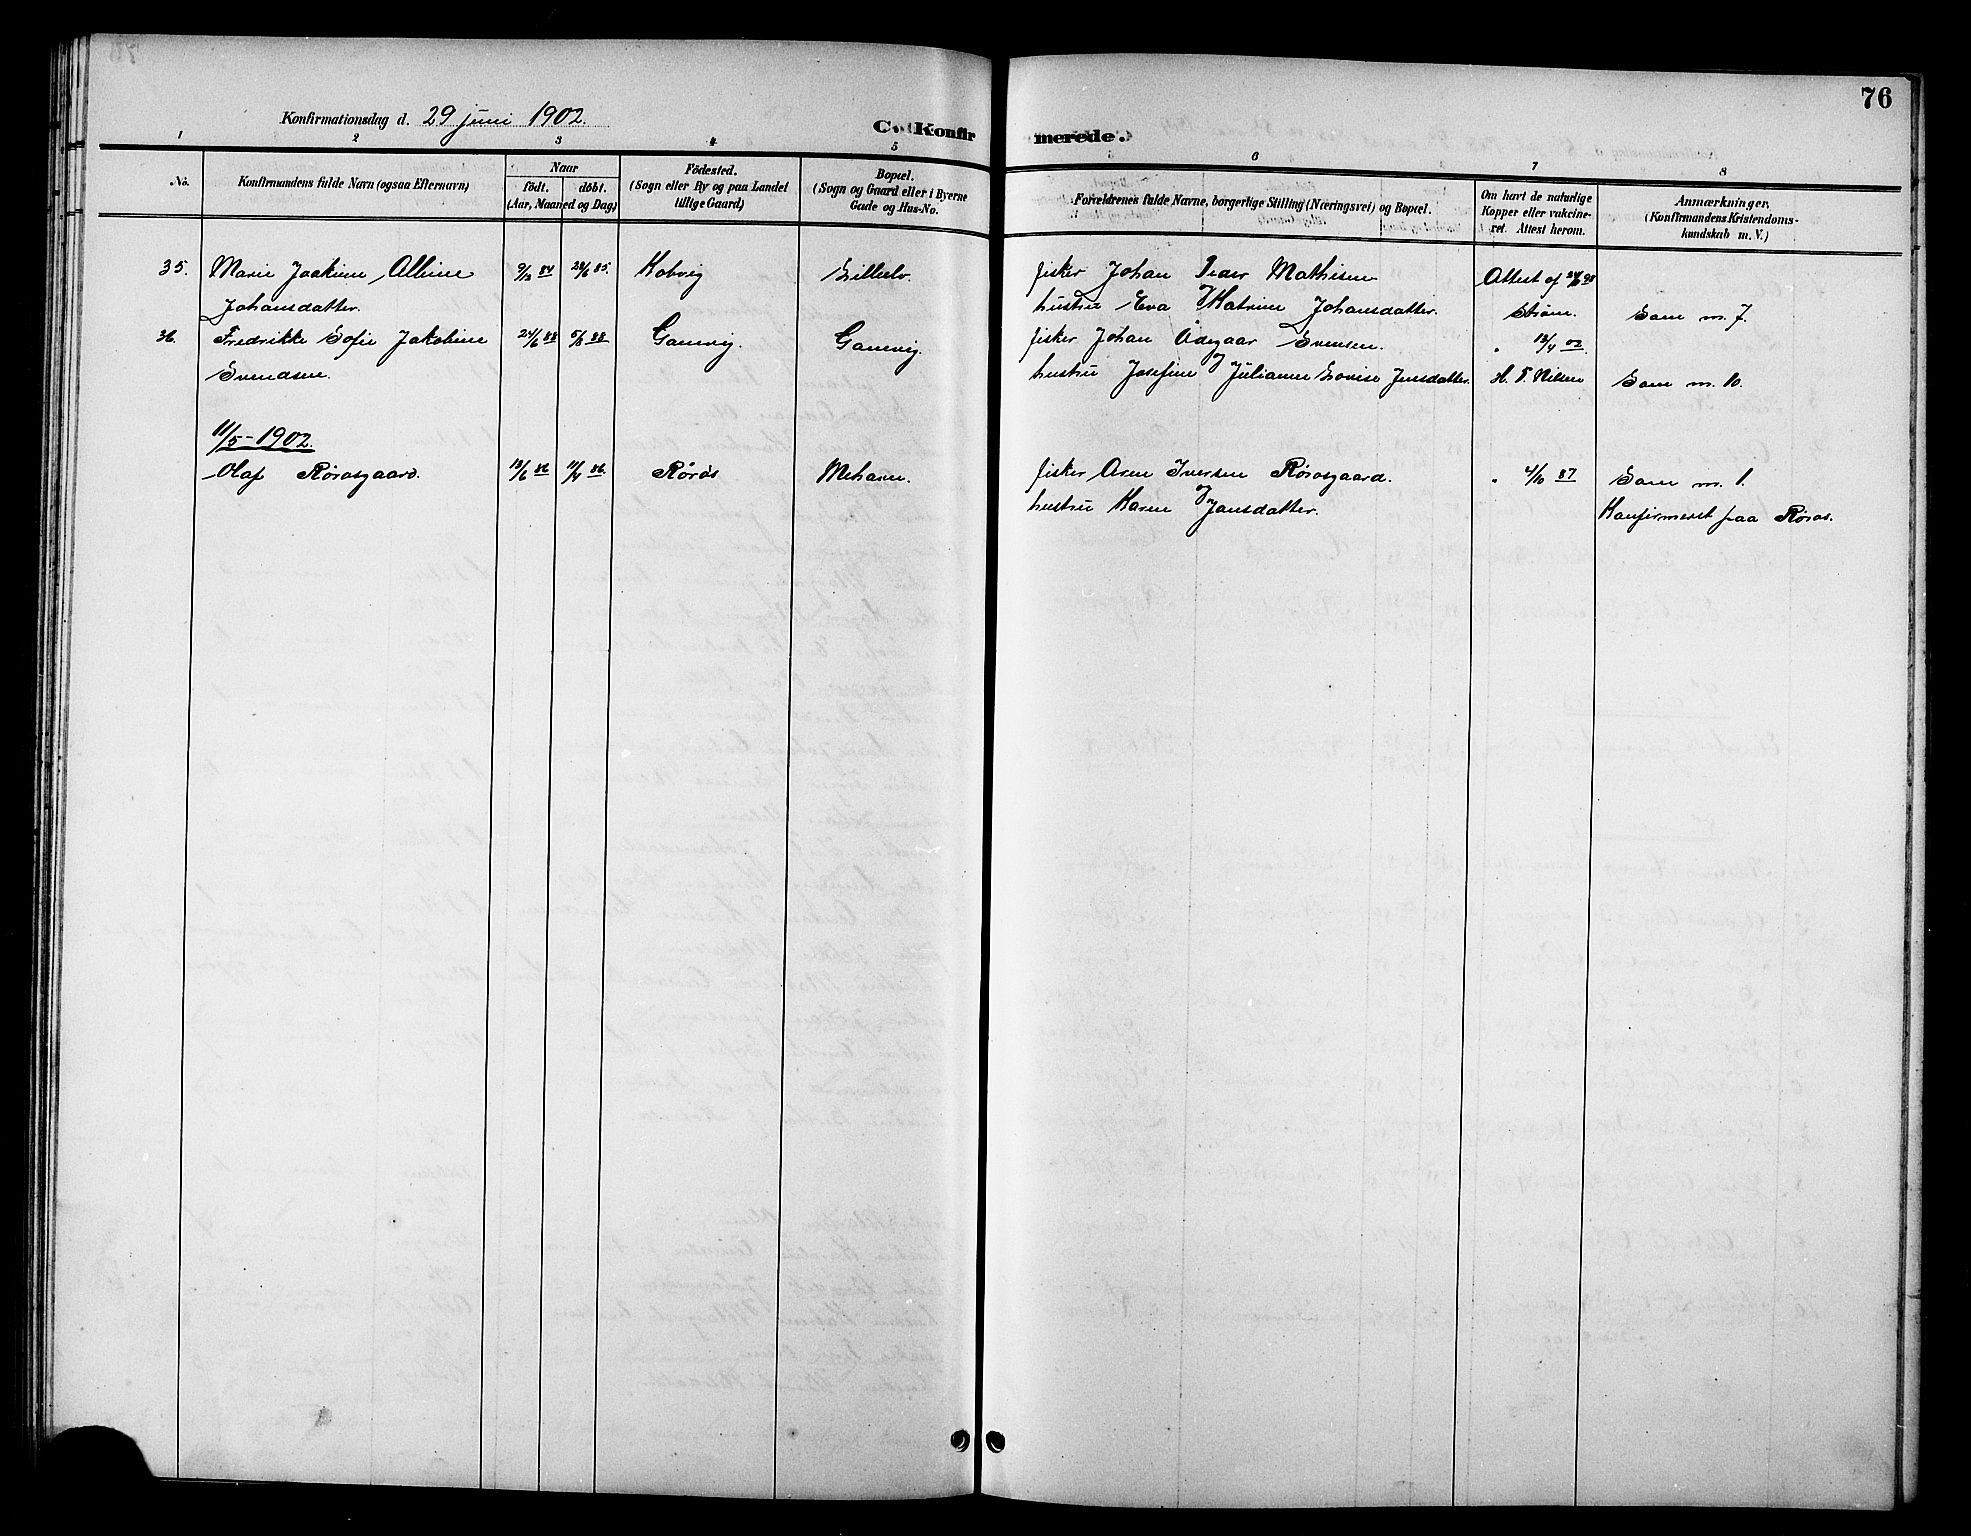 76
Konfirmationsdag d. 29 juni 1902.
C. Konfirmerede.
1 2 3 4 5 6 7 8
No.
Konfirmandens fulde Navn (ogsaa Efternavn)
Naar
födt. döbt.
(Aar, Maaned og Dag)
Födested.
(Sogn eller By og paa Landet
tillige Gaard)
Bopæl.
(Sogn og Gaard eller i Byerne
Gade og Hus-No.
Forældrenes fulde Navne, borgerlige Stilling (Næringsvei) og Bopæl.
Om havt de naturlige
Kopper eller vakcine-
ret. Attest herom.
Anmærkninger,
(Konfirmandens Kristendoms-
kundskab m. V.)
35. Marie Joakime Alvine 9/3 84 28/6 85. Kobvig Lillelv. fisker Johan Peder Mathisen Attest af
Johansdatter. hustru Eva Katrine Johansdatter. Strøm. Som m. 7.
36. Fredrikke Sofie Jakobine 24/6 88 5/8 88 Gamvig. Gamvig. fisker Johan Ødegaar Svensen. " 13/4 02
Svendsen. hustru Josefine Julianne Lovise Jensdatter. H. T. Nilsen Som m. 10.
11/5 - 1902.
Olaf Rørosgaard. 13/6 86 11/7 86. Rørøs Mehavn. fisker Arne Iversen Rørosgaard. " 4/10 87 Som m. 1.
hustru Karen Jansdatter. Konfirmeret paa Røros.